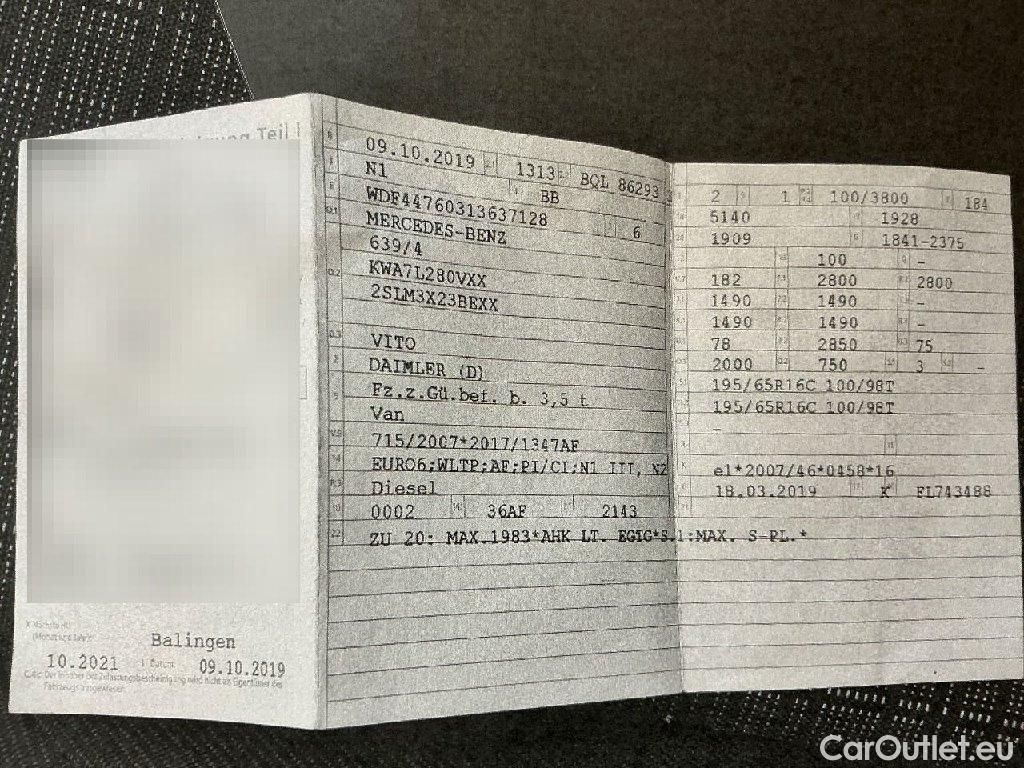 Teil I
Balingen
10.2021 09.10.2019
09.10.2019 1313 BQL 86293
N1 BB
WDF44760313637128 6
MERCEDES-BENZ
639/4
KWA7L280VXX
2SLM3X23BEXX
VITO
DAIMLER (D)
Fz.z.Gü.bef. b. 3,5 t
Van
715/2007*2017/1347AF
EURO6;WLTP;AF;PI/CI;N1 III, N2
Diesel
0002 36AF 2143
ZU 20: MAX.1983*AHK LT. EGTG*S.1:MAX. S-PL.*
2 1 100/3800 184
5140 1928
1909 1841-2375
100 -
182 2800 2800
1490 1490 -
1490 1490 -
78 2850 75
2000 750 3 -
195/65R16C 100/98T
195/65R16C 100/98T
-
e1*2007/46*0458*16
18.03.2019 K FL743488
CarOutlet.eu